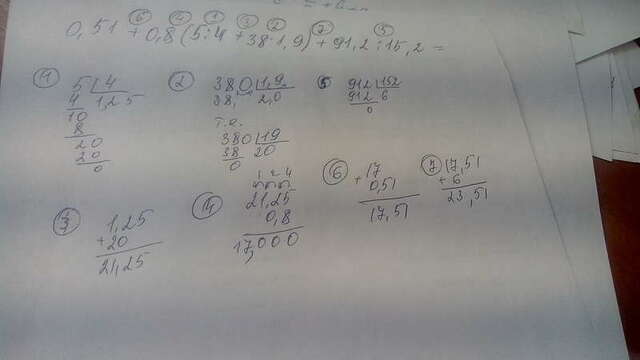 ⑥ ④ ① ③ ② ⑦ ⑤
0,51 + 0,8 (5:4 + 38:1,9) + 91,2 : 15,2 =
① 5 | 4
4 1,25
10
8
20
20
0
② 38,0 | 1,9
38, 2,0
т.о.
380 | 19
38 20
0
⑤ 912 | 152
912 6
0
③ 1,25
+ 20
21,25
④ 1 2 4
21,25
0,8
17,000
⑥ + 17
0,51
17,51
⑦ 17,51
+ 6
23,51